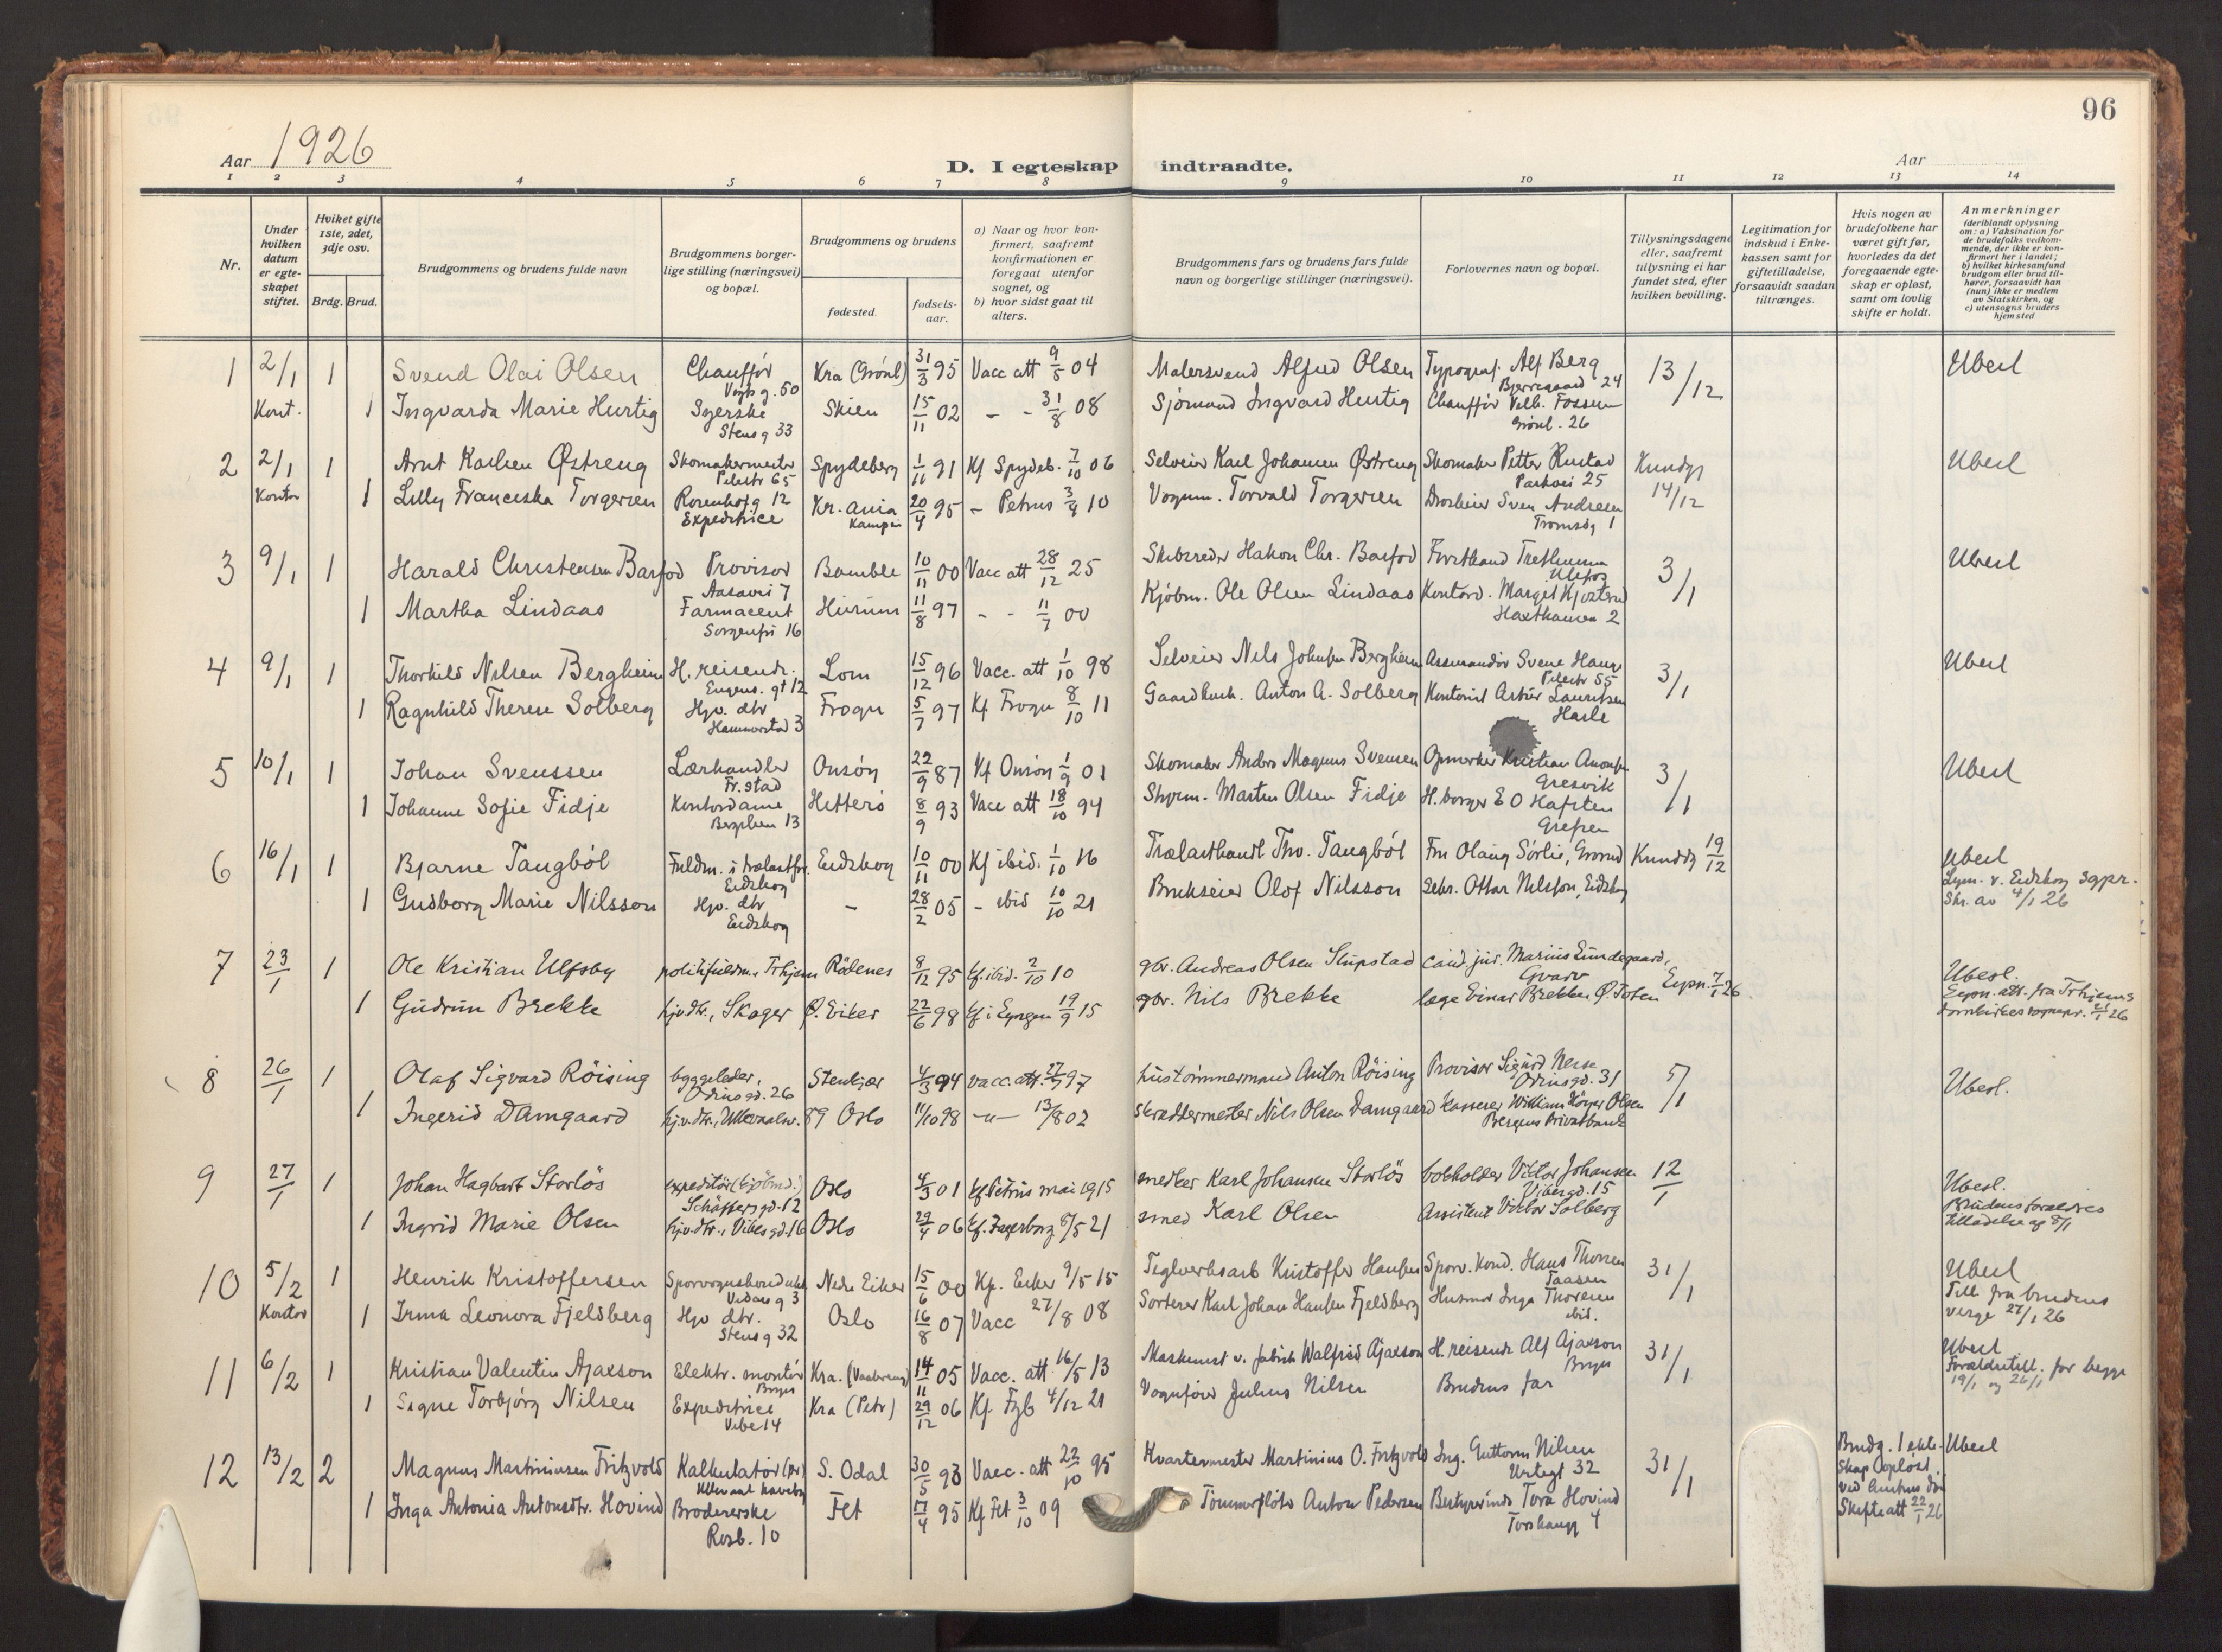 96
Aar 1926
D. I egteskap indtraadte.
Aar
1 2 3 4 5 6 7 8 9 10 11 12 13 14
Nr.
Under hvilken datum er egteskapet stiftet.
Hvilket gifte 1ste, 2det, 3dje osv.
Brdg. Brud.
Brudgommens og brudens fulde navn
Brudgommens borgerlige stilling (næringsvei) og bopæl.
Brudgommens og brudens
fødested.
fødselsaar.
a) Naar og hvor konfirmert, saafremt konfirmationen er foregaat utenfor sognet, og
b) hvor sidst gaat til alters.
Brudgommens fars og brudens fars fulde navn og borgerlige stillinger (næringsvei).
Forlovernes navn og bopæl.
Tillysningsdagene eller, saafremt tillysning ei har fundet sted, efter hvilken bevilling.
Legitimation for indskud i Enkekassen samt for giftetilladelse, forsaavidt saadan tiltrænges.
Hvis nogen av brudefolkene har været gift før, hvorledes da det foregaaende egteskap er opløst, samt om lovlig skifte er holdt.
Anmerkninger (deriblandt oplysning om: a) Vaksination for de brudefolks vedkommende, der ikke er konfirmert her i landet; b) hvilket kirkesamfund brudgom eller brud tilhører, forsaavidt han (hun) ikke er medlem av Statskirken, og c) utensogns bruders hjemsted
1 2/1 1 Svend Olai Olsen Chauffør Vogts g. 60 Kra (Grønl) 31/3 95 Vacc att 9/5 04 Malersvend Alfred Olsen Typograf. Alf Berg Bjerregaard 24 13/12 Ubesl
Kont. 1 Ingvarda Marie Hurtig Syerske Stens g 33 Skien 15/11 02 - - 31/8 08 Sjømand Ingvard Hurtig Chauffør Vilh. Fossum Grønl. 26
2 2/1 1 Arnt Østreng Skomakermester Pilestr 65 Spydeberg 1/11 91 Kf Spydeb. 7/10 06 Selveier Karl Johansen Østreng Skomaker Petter Rustad Parkvei 25 Kundg 14/12 Ubesl
Kontor 1 Lilly Franceska Torgersen Rosenhofg 12 Expeditrice Kr.ania Kampen 20/4 95 - Petrus 3/4 10 Vognm. Torvald Torgersen Drosjeeier Sven Andresen Tromsøg 1
3 9/1 1 Harald Christensen Barfod Provisor Aasavei 7 Bamble 10/11 00 Vacc att 28/12 25 Skibsreder Hakon Chr. Barfod Ulefos 3/1 Ubesl
1 Martha Lindaas Farmaceut Sorgenfri 16 Hurum 11/8 97 - - 11/7 00 Kjøbm. Ole Olsen Lindaas Kontord. Margit Haxthausen 2
4 9/1 1 Thorkild Nilsen Bergheim H. reisende Eugens. gt 12 Lom 15/12 96 Vacc. att 1/10 98 Selveier Nils Johnsen Bergheim Assurandør Svene Hauge Pilestr 55 3/1 Ubesl
1 Ragnhild Therese Solberg Hjv. dtr Hammerstad 3 Frogn 5/7 97 Kf Frogn 8/10 11 Gaardbruk. Anton A. Solberg Kontorist Artur Lauritsen Hasle
5 10/1 1 Johan Svenssen Lærhandler Fr.stad Onsøy 22/9 87 Kf Onsøy 1/9 01 Skomaker Anders Magnus Svensen Opmerker Kristian Gresvik 3/1 Ubesl
1 Johanne Sofie Fidje Kontordame Bergslien 13 Hitterø 8/9 93 Vacc att 18/10 94 Styrm. Martin Olsen Fidje H.borger E O Hafsten Grefsen
6 16/1 1 Bjarne Tangbøl Fuldm. i trælastfor. Eidskog Eidskog 10/11 00 Kf ibid. 1/10 16 Trælasthandl Thv. Tangbøl Fru Olaug Sørlie, Grorud Kundg 19/12 Ubesl Lysn. v. Eidskog sgpr. Skr. av 4/1 26
1 Gudborg Marie Nilsson Hjv. dtr Eidskog - 28/2 05 - ibid 10/10 21 Brukseier Olof Nilsson Sekr. Ottar Nilsson, Eidskog
7 23/1 1 Ole Kristian Ulfsby politifuldm. Trhjem Rødenes 8/12 95 kf. ibid. 2/10 10 gbr. Andreas Olsen Slupstad cand. jur. Marius Lundegaard, Gvarv Lysn. 7/1 26 Ubesl. Lysn. att. fra Trhjems domkirkes sognepr. 21/1 26
1 Gudrun Brekke hjv.dtr., Skager Ø. Eiker 22/6 98 kf i Lyngen 19/9 15 gbr. Nils Brekke læge Einar Brekke Ø. Toten
8 26/1 1 Olaf Sigvard Röising byggeleder, Odinsgd. 26 Stenkjær 4/3 94 vacc. att. 27/7 97 hustømmermand Anton Röising Provisor Sigurd Odinsgd. 31 5/1 Ubesl.
1 Ingerid Damgaard hj.v.dtr., Ullevaalsv. 89 Oslo 11/10 98 -"- 13/8 02 skræddermester Nils Olsen Damgaard kasserer William Höyer Olsen Bergens Privatbank
9 27/1 1 Johan Hagbart Storløs expeditør (kjøbmd.) Schäffersgd. 12 Oslo 4/3 01 kf Petrus mai 1915 snedker Karl Johansen Storløs bokholder Viktor Johansen Vibesgd. 15 12/1 Ubesl. Brudens forældres tilladelse af 8/1
1 Ingrid Marie Olsen hjv.dtr., Vibesgd. 16 Oslo 29/4 06 kf. Fagerborg 8/5 21 smed Karl Olsen Assistent Viktor Solberg
10 5/2 1 Henrik Kristoffersen Sporvognskonduktør Vidars g 3 Nedr Eiker 15/6 00 Kf. Eiker 9/5 15 Teglverksarb Kristoffer Hansen Sporv. Kond. Hans Thoresen Taasen 31/1 Ubesl Till fra brudens verge 27/1 26
Kontor 1 Irma Leonora Fjeldberg Hjv dtr. Stens g 32 Oslo 16/8 07 Vacc 27/8 08 Sorterer Karl Johan Hansen Fjeldberg Husmor Inga Thoresen ibid.
11 6/2 1 Kristian Valentin Ajaxson Elektr. montør Bryn Kra. (Vaalereng) 14/11 05 Vacc. att 16/5 13 Maskinist v. fabrik Walfrid Ajaxson H. reisende Alf Ajaxson Bryn 31/1 Ubesl Forældretill. for begge 19/1 og 26/1
1 Signe Torbjørg Nilsen Expeditrice Vibe 14 Kra (Petr) 29/12 06 Kf. Fgb 4/12 21 Vognfører Julius Nilsen Brudens far
12 13/2 2 Magnus Martiniusen Fritzvold Kalkulatør (pr) Ullevaal haveby S. Odal 30/5 93 Vacc. att 22/10 95 Kvartermester Martinius O. Fritzvold Ing. Guttorm Nilsen Urtegt 32 31/1 Brudg. 1 ekteskap opløst ved hustrus død Skifteatt 22/1 26 Ubesl
1 Inga Antonia Antonsdtr. Hovind Brodererske Rosb. 10 Fet 17/4 95 Kf Fet 3/10 09 Tømmerfløter Anton Pedersen Bestyrerinde Tora Hovind Torshaugg 4